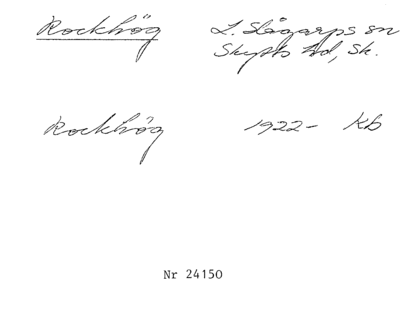 Rockhög L. Slågarps sn
Skytts hd, Sk.
Rockhög 1922- Kb
Nr 24150